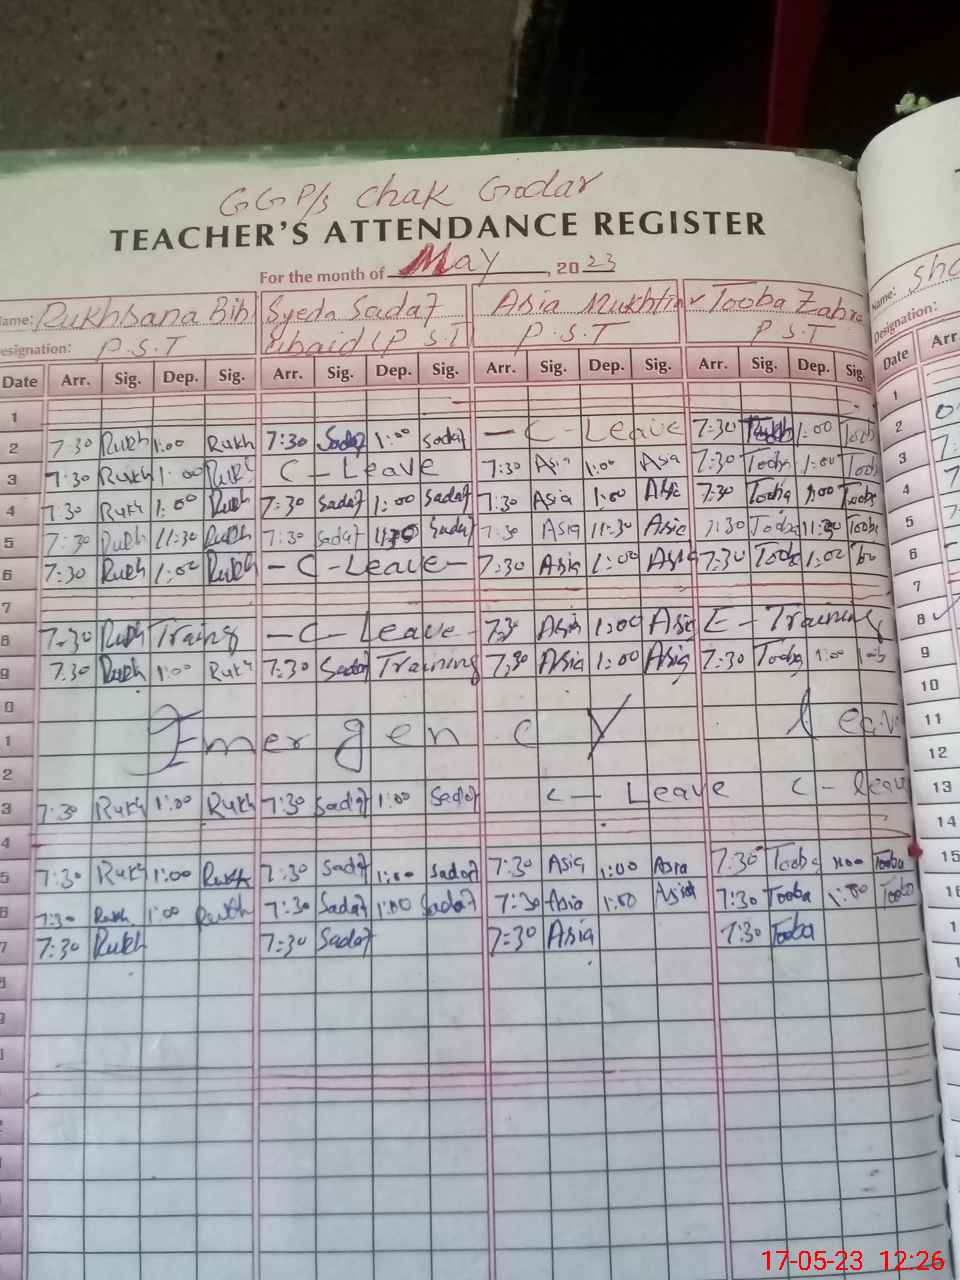 GGP/s Chak Godar
TEACHER'S ATTENDANCE REGISTER
For the month of May, 2023
Name: Rukhsana Bibi Syeda Sadaf Asia Mukhtiar Tooba Zahra
Designation: P.S.T Ubaid (P.S.T P.S.T P.S.T
Date Arr. Sig. Dep. Sig. Arr. Sig. Dep. Sig. Arr. Sig. Dep. Sig. Arr. Sig. Dep. Sig.
1
2 7:30 Rukh 1:00 Rukh 7:30 Sadaf 1:00 Sadaf - C - Leave 7:30 1:00 Toob
3 7:30 Rukh 1:00 Rukh C - Leave 7:30 Asia 1:00 Asia 7:30 Tooba 1:00 Toob
4 7:30 Rukh 1:00 Rukh 7:30 Sadaf 1:00 Sadaf 7:30 Asia 1:00 Asia 7:30 Tooba 1:00 Tooba
5 7:30 Rukh 11:30 Rukh 7:30 Sadaf 11:30 Sadaf 7:30 Asia 11:30 Asia 7:30 Tooba 11:30 Tooba
6 7:30 Rukh 1:00 Rukh - C - Leave - 7:30 Asia 1:00 Asia 7:30 Tooba 1:00 Too
7
8 7:30 Rukh Traing - C - Leave - 7:30 Asia 1:00 Asia E - Training
9 7:30 Rukh 1:00 Rukh 7:30 Sadaf Training 7:30 Asia 1:00 Asia 7:30 Tooba 1:00
0
1 Emergency leav
2
3 7:30 Rukh 1:00 Rukh 7:30 Sadaf 1:00 Sadaf C - Leave C - leav
4
5 7:30 Rukh 1:00 Rukh 7:30 Sadaf 1:00 Sadaf 7:30 Asia 1:00 Asia 7:30 Tooba 1:00 Tooba
6 7:30 Rukh 1:00 Rukh 7:30 Sadaf 1:00 Sadaf 7:30 Asia 1:00 Asia 7:30 Tooba 1:00 Tooba
7 7:30 Rukh 7:30 Sadaf 7:30 Asia 7:30 Tooba
Name:
Designation:
Date Arr
1
2
3
4
5
6
7
8
9
10
11
12
13
14
15
16
17-05-23 12:26